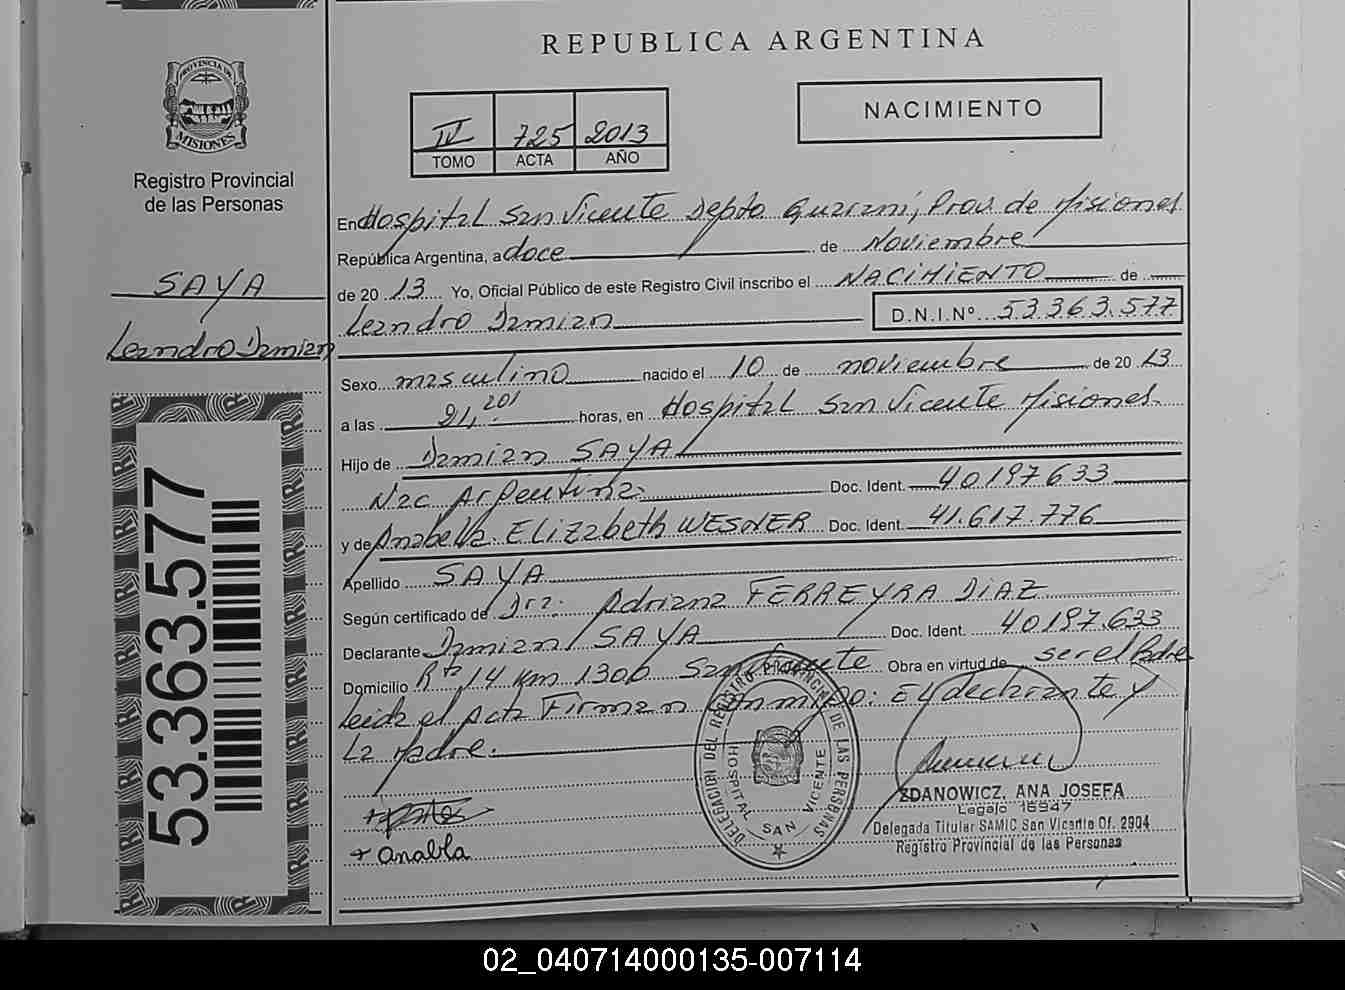 REPUBLICA ARGENTINA
PROVINCIA DE
MISIONES
Registro Provincial
de las Personas
SAYA
Leandro Damian
53.363.577
NACIMIENTO
IV 725 2013
TOMO ACTA AÑO
En Hospital San Vicente Depto Guarani, Prov. de Misiones
República Argentina, a doce de Noviembre
de 20 13 Yo, Oficial Público de este Registro Civil inscribo el NACIMIENTO de
Leandro Damian D.N.I.Nº 53.363.577
Sexo masculino nacido el 10 de noviembre de 20 13
a las 21,20' horas, en Hospital San Vicente Misiones.
Hijo de Damian SAYA
Nac Argentina. Doc. Ident. 40197.633
y de Anabella Elizabeth WESNER Doc. Ident. 41.617.776
Apellido SAYA
Según certificado de Dra. Adriana FERREYRA DIAZ
Declarante Damian SAYA Doc. Ident. 40197.633
Domicilio Rta 14 km 1300 San Vicente Obra en virtud de ser el Padre
Leida el Acta Firman Conmigo: El declarante y
La Madre.
+ Anabla
DELEGACION DEL REGISTRO PROVINCIAL DE LAS PERSONAS
HOSPITAL SAN VICENTE
ZDANOWICZ, ANA JOSEFA
Legajo 16947
Delegada Titular SAMIC San Vicente Of. 2904
Registro Provincial de las Personas
02_040714000135-007114